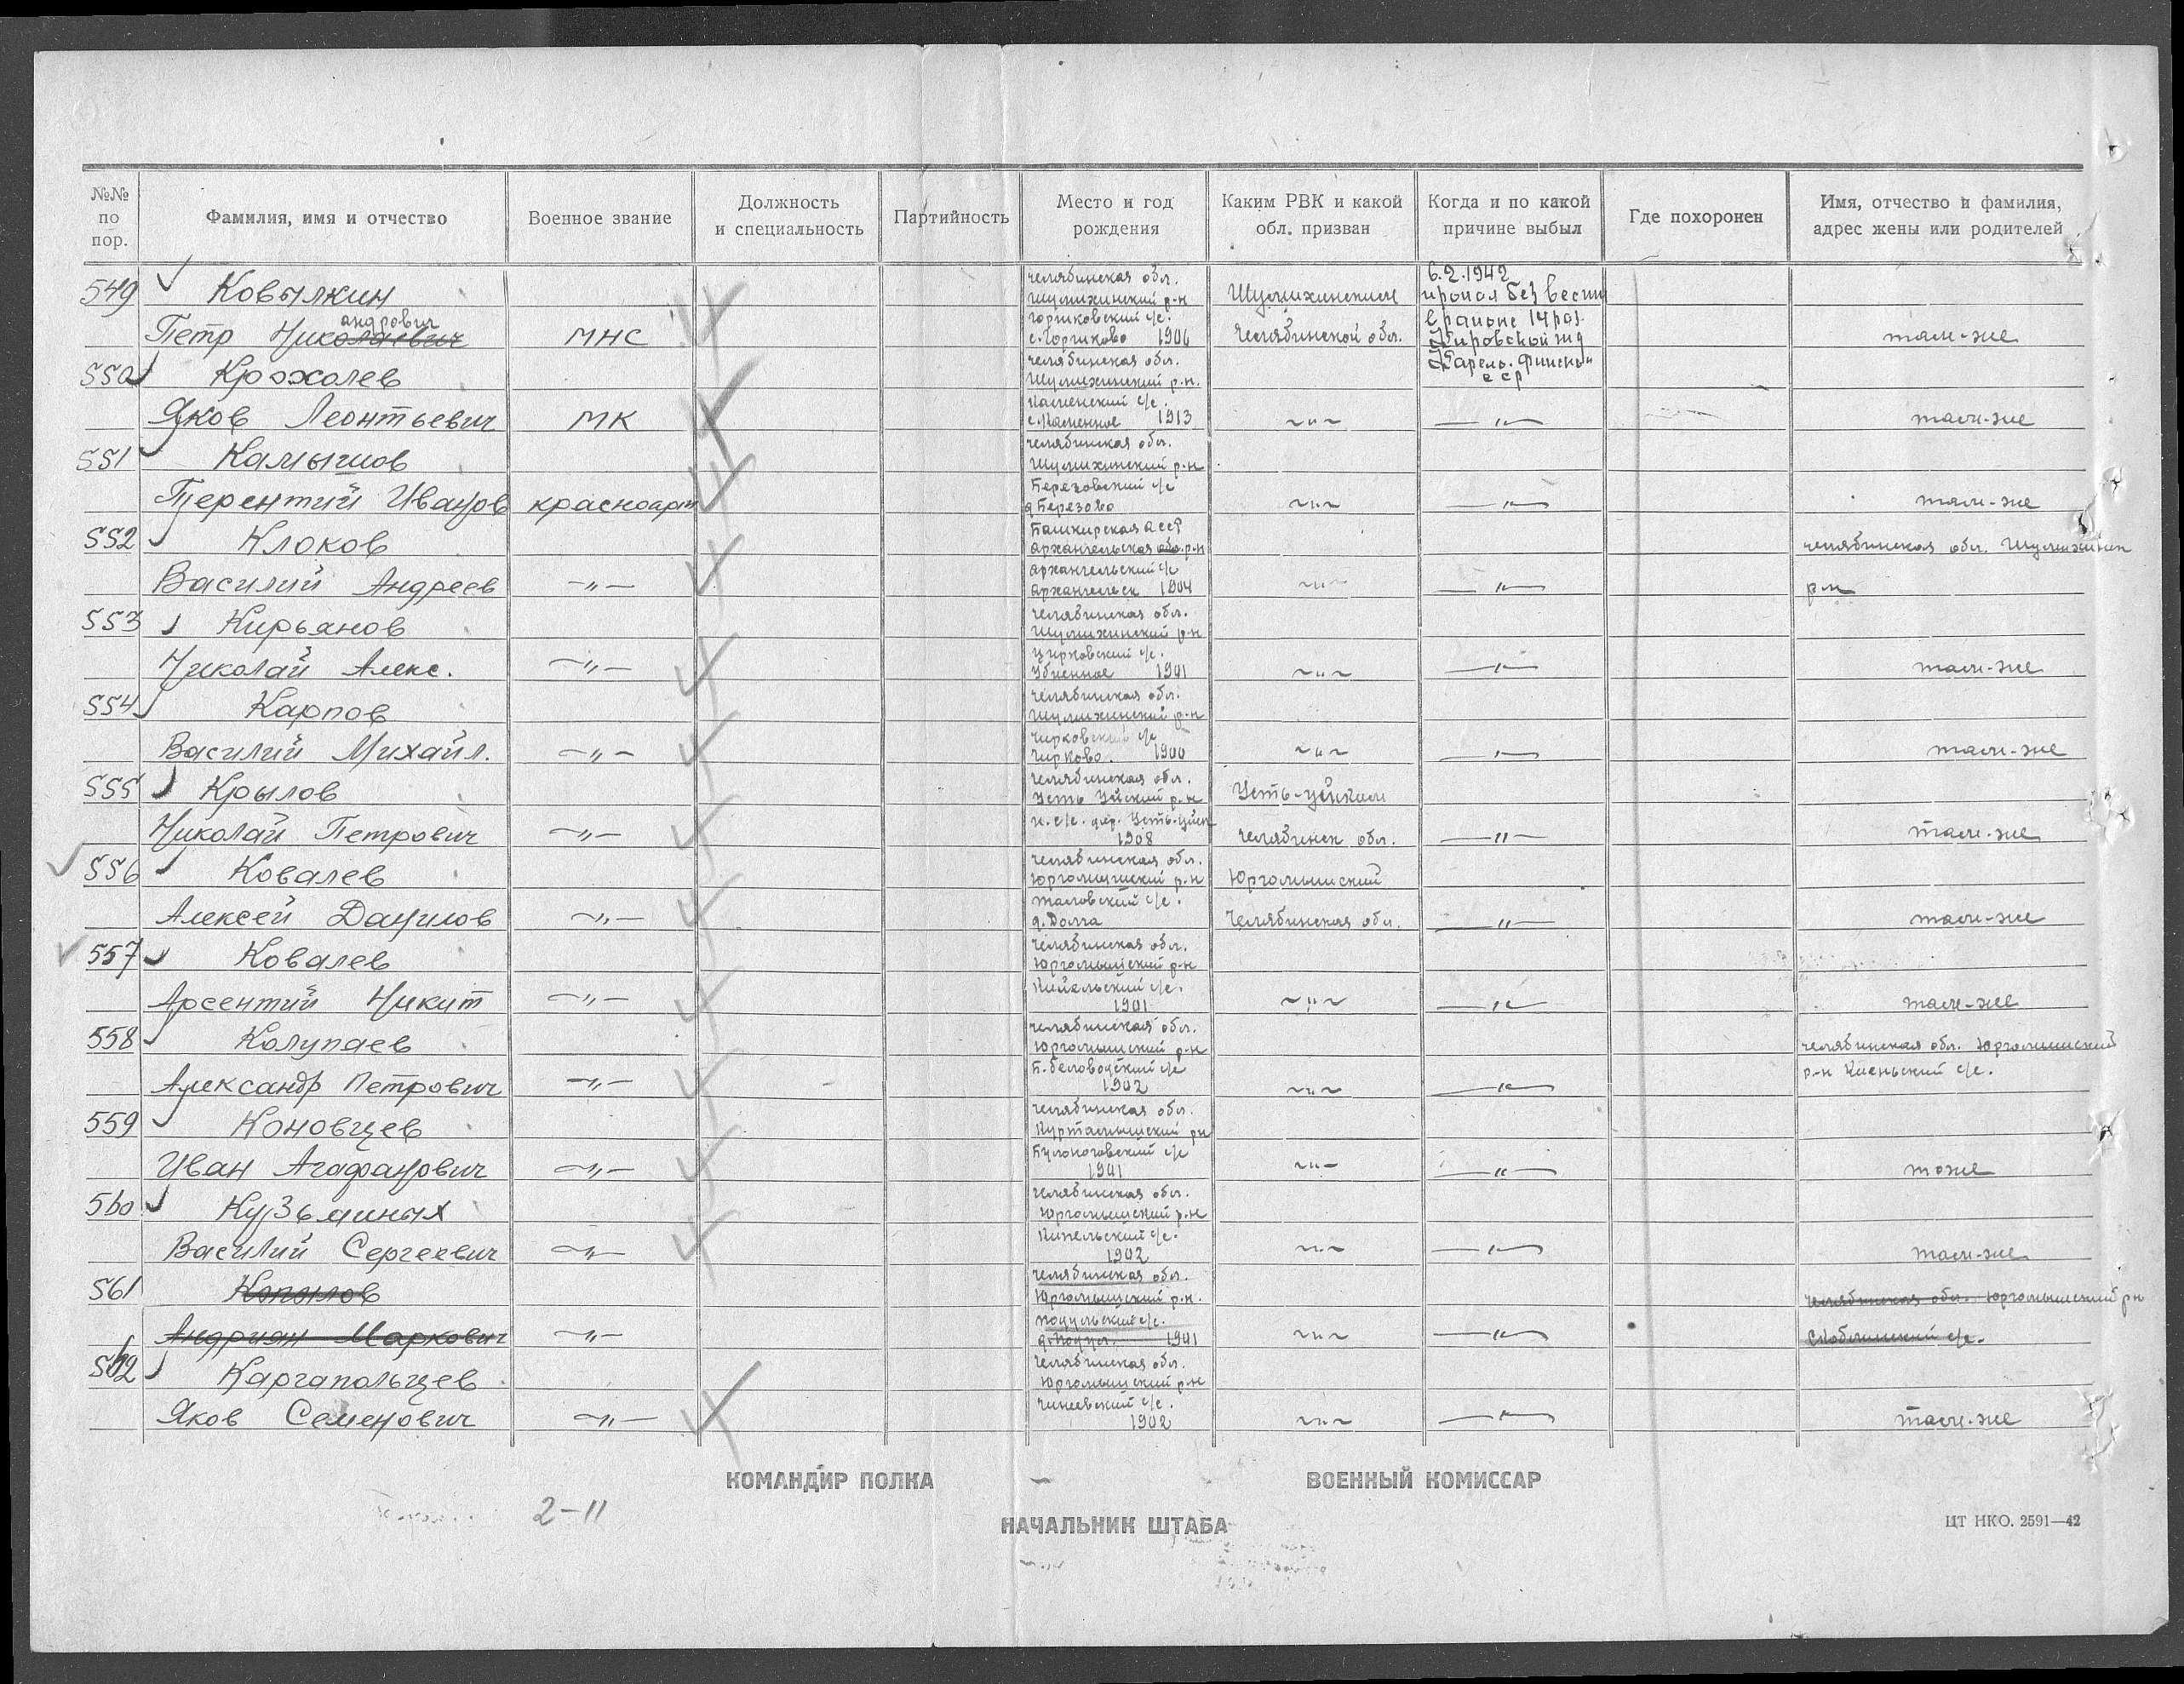 №№ по пор. Фамилия, имя и отчество Военное звание Должность и специальность Партийность Место и год рождения Каким РВК и какой обл. призван Когда и по какой причине выбыл Где похоронен Имя, отчество и фамилия, адрес жены или родителей
549 Ковылкин
Петр Николаевич андрович МНС
Челябинская обл.
Шумихинский р-н
с/с.
1906
Шумихинским
Челябинской обл.
6.2.1942
пропал без вести
в районе 14 раз.
Кировской жд
Карело. Финской
сср
там-же
550 Крохолев
Яков Леонтьевич МК
Челябинская обл.
Шумихинский р-н.
Каменский с/с.
с. Каменное 1913
~"~ —"— там-же
551 Камышов
Терентий Иванов красноарм
Челябинская обл.
Шумихинский р-н
Березовский с/с
д Березово
~"~ —"— там-же
552 Клоков
Василий Андреев —"—
Башкирская АССР
Архангельская обл. р-н
Архангельский с/с
Архангельск 1904
~"~ —"—
Челябинская обл. Шумихинск
р-н
553 Кирьянов
Николай Алекс. —"—
Челябинская обл.
Шумихинский р-н
с/с.
1901
~"~ —"— там-же
554 Карпов
Василий Михайл. —"—
Челябинская обл.
Шумихинский р-н
Чирковский с/с
Чирково. 1900
~"~ —"— там-же
555 Крылов
Николай Петрович —"—
Челябинская обл.
Усть Уйский р-н
с/с. дер. Усть-Уйск
1908
Усть-Уйским
Челябинск обл.
—"— там-же
556 Ковалев
Алексей Данилов —"—
Челябинская обл.
Юргамышский р-н
Таловский с/с.
д. Долга
Юргомышский
Челябинская обл.
—"— там-же
557 Ковалев
Арсентий Никит —"—
Челябинская обл.
Юргомышский р-н
с/с.
1901
~"~ —"— там-же
558 Колупаев
Александр Петрович —"—
Челябинская обл.
Юргомышский р-н
Б. Беловодский с/с
1902
~"~ —"—
Челябинская обл. Юргомышский
р-н с/с.
559 Коновцев
Иван Агафанович —"—
Челябинская обл.
Куртамышский рн
с/с
1901
~"~ —"— тоже
560 Кузьминых
Василий Сергеевич —"—
Челябинская обл.
Юргомышский р-н
Кипельский с/с.
1902
~"~ —"— там-же
561 Копылов
Андриан Маркович —"—
Челябинская обл.
Юргомышский р-н.
с/с.
1901
~"~ —"—
Челябинская обл. Юргомышский рн
с/с.
562 Каргапольцев
Яков Семенович —"—
Челябинская обл.
Юргомышский р-н
Чинеевский с/с.
1902
~"~ —"— там-же
КОМАНДИР ПОЛКА ВОЕННЫЙ КОМИССАР
2-11
НАЧАЛЬНИК ШТАБА
ЦТ НКО. 2591—42